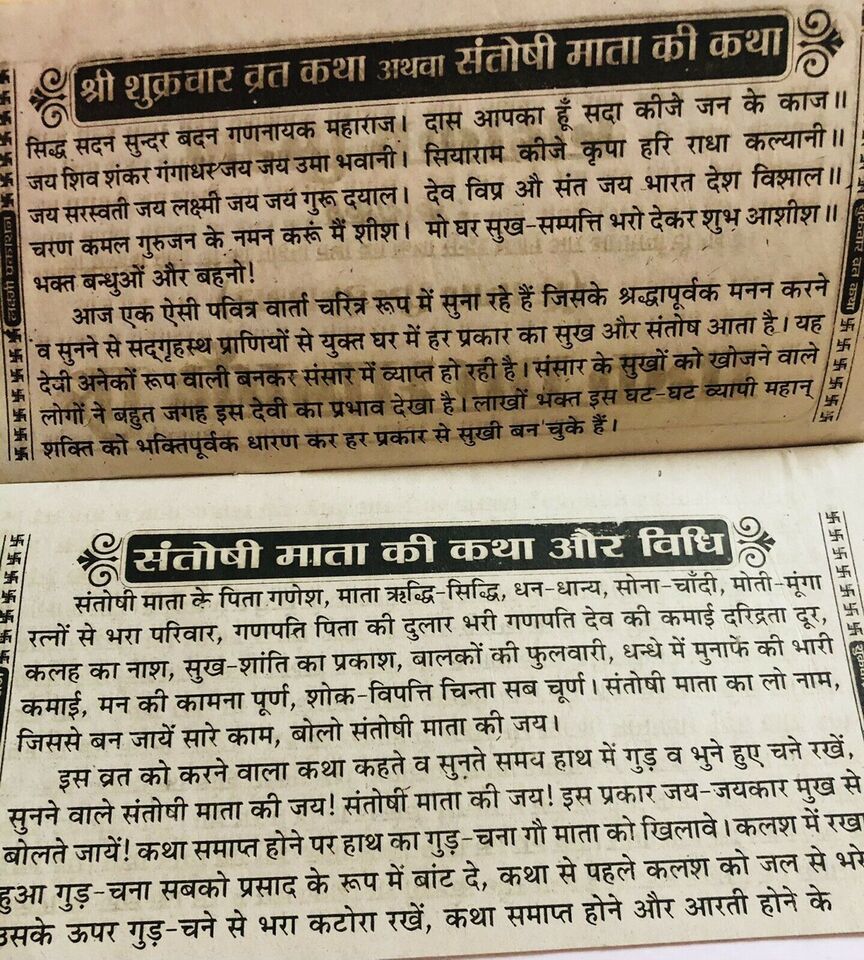 श्री शुक्रवार व्रत कथा अथवा संतोषी माता की कथा
सिद्ध सदन सुन्दर बदन गणनायक महाराज। दास आपका हूँ सदा कीजे जन के काज॥
जय शिव शंकर गंगाधर जय जय उमा भवानी। सियाराम कीजे कृपा हरि राधा कल्यानी॥
जय सरस्वती जय लक्ष्मी जय जय गुरू दयाल। देव विप्र औ संत जय भारत देश विशाल॥
चरण कमल गुरुजन के नमन करूं मैं शीश। मो घर सुख-सम्पत्ति भरो देकर शुभ आशीश॥
भक्त बन्धुओं और बहनो!
आज एक ऐसी पवित्र वार्ता चरित्र रूप में सुना रहे हैं जिसके श्रद्धापूर्वक मनन करने
व सुनने से सद्गृहस्थ प्राणियों से युक्त घर में हर प्रकार का सुख और संतोष आता है। यह
देवी अनेकों रूप वाली बनकर संसार में व्याप्त हो रही है। संसार के सुखों को खोजने वाले
लोगों ने बहुत जगह इस देवी का प्रभाव देखा है। लाखों भक्त इस घट-घट व्यापी महान्
शक्ति को भक्तिपूर्वक धारण कर हर प्रकार से सुखी बन चुके हैं।
संतोषी माता की कथा और विधि
संतोषी माता के पिता गणेश, माता ऋद्धि-सिद्धि, धन-धान्य, सोना-चाँदी, मोती-मूंगा
रत्नों से भरा परिवार, गणपति पिता की दुलार भरी गणपति देव की कमाई दरिद्रता दूर,
कलह का नाश, सुख-शांति का प्रकाश, बालकों की फुलवारी, धन्धे में मुनाफे की भारी
कमाई, मन की कामना पूर्ण, शोक-विपत्ति चिन्ता सब चूर्ण। संतोषी माता का लो नाम,
जिससे बन जायें सारे काम, बोलो संतोषी माता की जय।
इस व्रत को करने वाला कथा कहते व सुनते समय हाथ में गुड़ व भुने हुए चने रखें,
सुनने वाले संतोषी माता की जय! संतोषी माता की जय! इस प्रकार जय-जयकार मुख से
बोलते जायें! कथा समाप्त होने पर हाथ का गुड़-चना गौ माता को खिलावे। कलश में रखा
हुआ गुड़-चना सबको प्रसाद के रूप में बांट दे, कथा से पहले कलश को जल से भरे
उसके ऊपर गुड़-चने से भरा कटोरा रखें, कथा समाप्त होने और आरती होने के